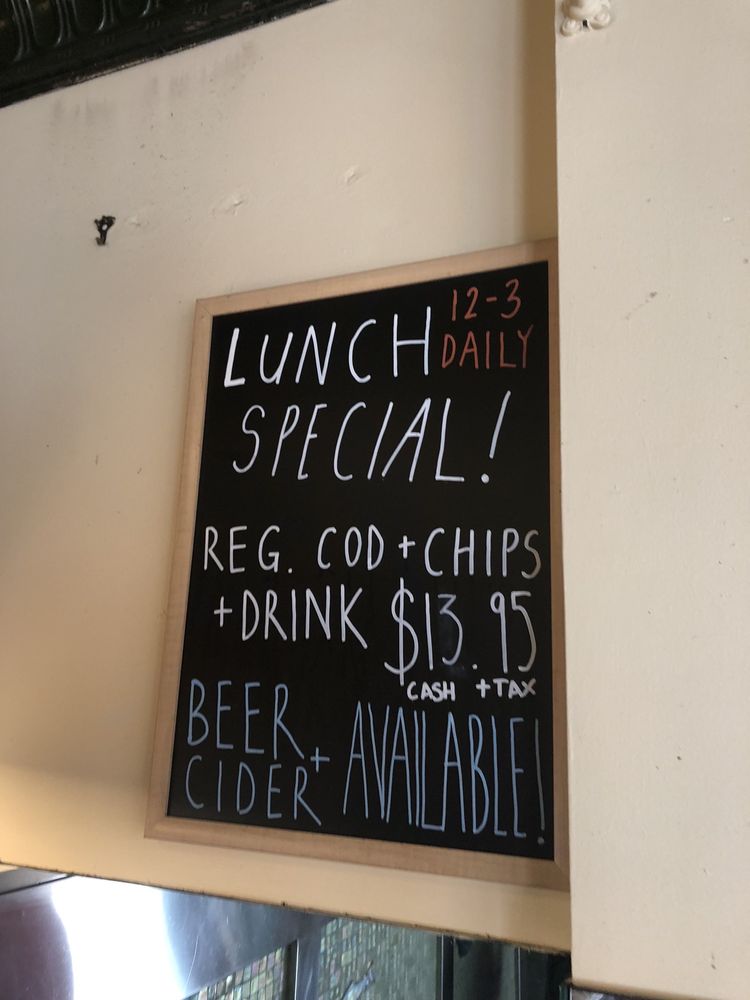 LUNCH 12-3 DAILY
SPECIAL!
REG. COD + CHIPS
+ DRINK $13.95
CASH + TAX
BEER + CIDER AVAILABLE!